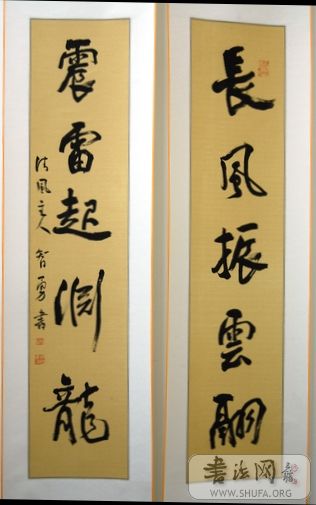 長風振雲翮
震雷起淵龍
風主人智勇書
書法网
WWW.SHUFA.ORG